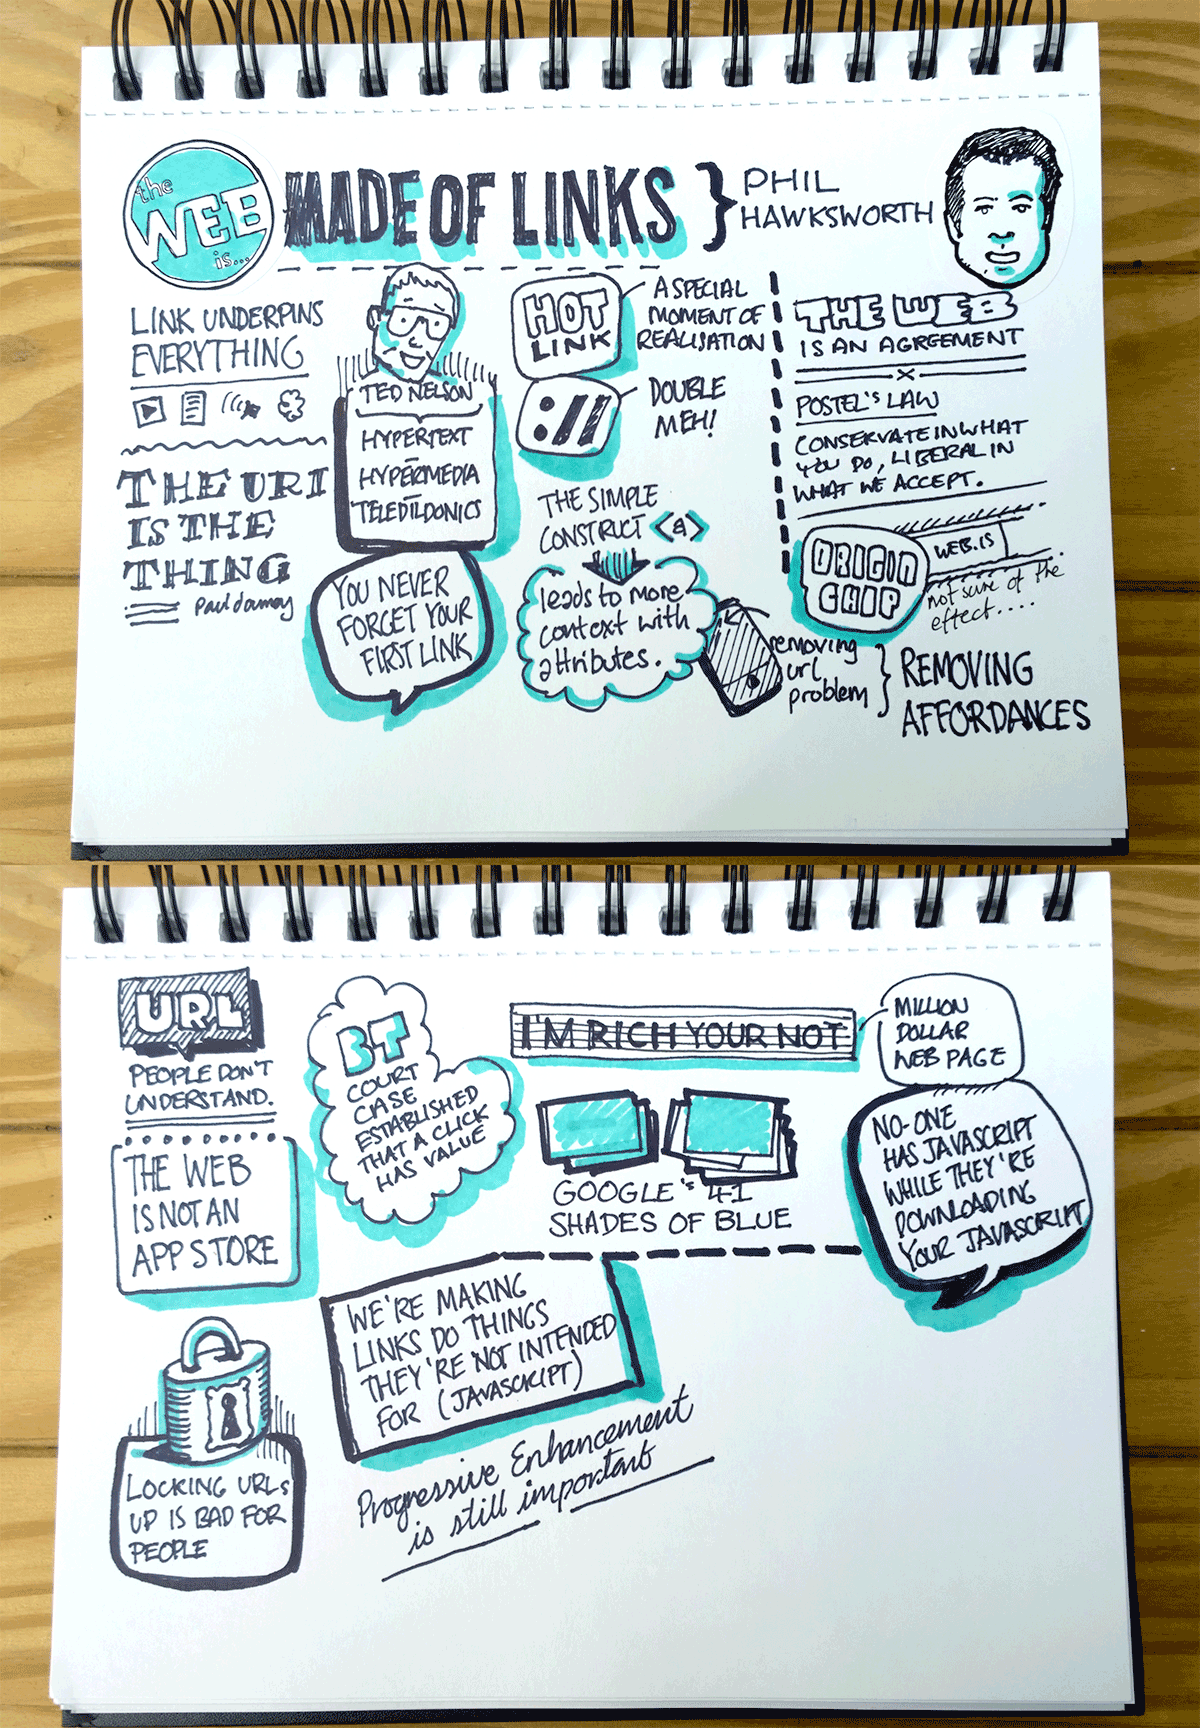 the
WEB
is...
MADE OF LINKS
PHIL
HAWKSWORTH
LINK UNDERPINS
EVERYTHING
THE URI
IS THE
THING
Paul downey
TED NELSON
HYPERTEXT
HYPERMEDIA
TELEDILDONICS
YOU NEVER
FORGET YOUR
FIRST LINK
HOT
LINK
A SPECIAL
MOMENT OF
REALISATION
://
DOUBLE
MEH!
THE SIMPLE
CONSTRUCT <a>
leads to more
context with
attributes.
THE WEB
IS AN AGREEMENT
x
POSTEL'S LAW
CONSERVATE IN WHAT
YOU DO, LIBERAL IN
WHAT WE ACCEPT.
ORIGIN
CHIP
WEB.IS
not sure of the
effect....
removing
url
problem
REMOVING
AFFORDANCES
URL
PEOPLE DON'T
UNDERSTAND.
THE WEB
IS NOT AN
APP STORE
LOCKING URLs
UP IS BAD FOR
PEOPLE
BT
COURT
CASE
ESTABLISHED
THAT A CLICK
HAS VALUE
I'M RICH YOUR NOT
MILLION
DOLLAR
WEB PAGE
GOOGLE'S 41
SHADES OF BLUE
NO-ONE
HAS JAVASCRIPT
WHILE THEY'RE
DOWNLOADING
YOUR JAVASCRIPT
WE'RE MAKING
LINKS DO THINGS
THEY'RE NOT INTENDED
FOR (JAVASCRIPT)
Progressive Enhancement
is still important